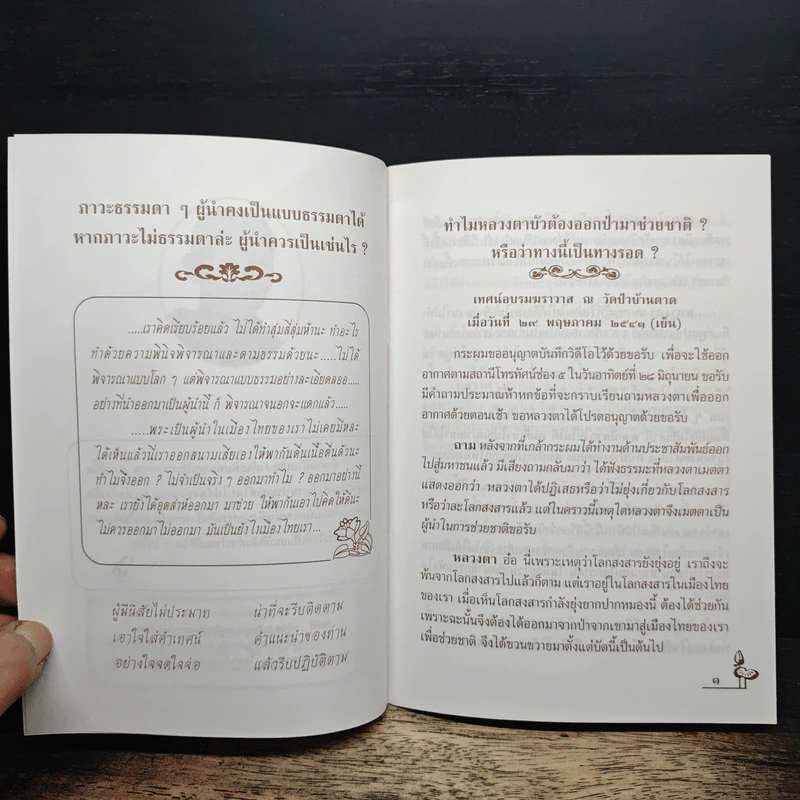 ภาวะธรรมดา ๆ ผู้นำคงเป็นแบบธรรมดาได้
หากภาวะไม่ธรรมดาล่ะ ผู้นำควรเป็นเช่นไร ?
.....เราคิดเรียบร้อยแล้ว ไม่ได้ทำสุ่มสี่สุ่มห้านะ ทำอะไร
ทำด้วยความพินิจพิจารณาและตามธรรมด้วยนะ.....ไม่ได้
พิจารณาแบบโลก ๆ แต่พิจารณาแบบธรรมอย่างละเอียดลออ.....
อย่างที่นำออกมาเป็นผู้นำนี้ ก็ พิจารณาจนอกจะแตกแล้ว.....
.....พระเป็นผู้นำในเมืองไทยของเราไม่เคยมีหละ
ได้เห็นแล้วนี่เราออกสนามเสียเองให้พากันตื่นเนื้อตื่นตัวนะ
ทำไมจึงออก ? ไม่จำเป็นจริงๆ ออกมาทำไม ? ออกมาอย่างนี้
หละ เรายังได้อุตส่าห์ออกมา มาช่วย ให้พากันเอาไปคิดให้ดีนะ
ไม่ควรออกมาไม่ออกมา มันเป็นยังไงเมืองไทยเรา...
ผู้มีนิสัยไม่ประมาท น่าที่จะรีบติดตาม
เอาใจใส่คำเทศน์ คำแนะนำของท่าน
อย่างใจจดใจจ่อ แล้วรีบปฏิบัติตาม
ทำไมหลวงตาบัวต้องออกป่ามาช่วยชาติ ?
หรือว่าทางนี้เป็นทางรอด ?
เทศน์อบรมฆราวาส ณ วัดป่าบ้านตาด
เมื่อวันที่ ๒๙ พฤษภาคม ๒๕๔๑ (เย็น)
กระผมขออนุญาตบันทึกวิดีโอไว้ด้วยขอรับ เพื่อจะใช้ออก
อากาศตามสถานีโทรทัศน์ช่อง ๕ ในวันอาทิตย์ที่ ๒๘ มิถุนายน ขอรับ
มีคำถามประมาณห้าหกข้อที่จะกราบเรียนถามหลวงตาเพื่อออก
อากาศด้วยตอนเช้า ขอหลวงตาได้โปรดอนุญาตด้วยขอรับ
ถาม หลังจากที่เกล้ากระผมได้ทำงานด้านประชาสัมพันธ์ออก
ไปสู่มหาชนแล้ว มีเสียงถามกลับมาว่า ได้ฟังธรรมะที่หลวงตาเมตตา
แสดงออกว่า หลวงตาได้ปฏิเสธหรือว่าไม่ยุ่งเกี่ยวกับโลกสงสาร
หรือว่าละโลกสงสารแล้ว แต่ในคราวนี้เหตุใดหลวงตาจึงเมตตาเป็น
ผู้นำในการช่วยชาติขอรับ
หลวงตา อ๋อ นี่เพราะเหตุว่าโลกสงสารยังยุ่งอยู่ เราถึงจะ
พ้นจากโลกสงสารไปแล้วก็ตาม แต่เราอยู่ในโลกสงสารในเมืองไทย
ของเรา เมื่อเห็นโลกสงสารกำลังยุ่งยากปากหมองนี้ ต้องได้ช่วยกัน
เพราะฉะนั้นจึงต้องได้ออกมาจากป่าจากเขามาสู่เมืองไทยของเรา
เพื่อช่วยชาติ จึงได้ขวนขวายมาตั้งแต่บัดนี้เป็นต้นไป
๑